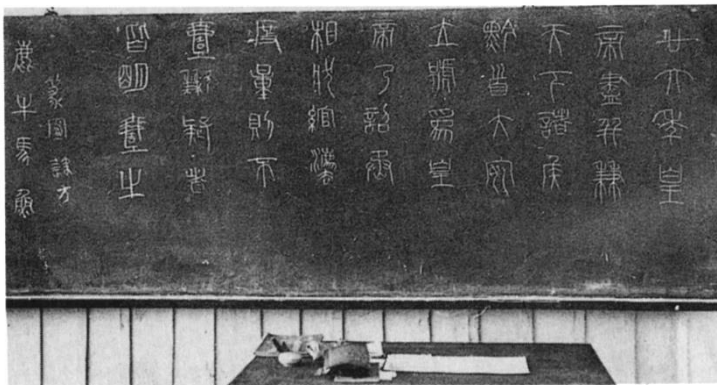 廿六年皇
帝盡并兼
天下諸侯
黔首大安
立號爲皇
帝乃詔丞
相狀綰灋
度量則不
壹歉疑者
皆明壹之
篆圓隸方
鹿牛馬魚